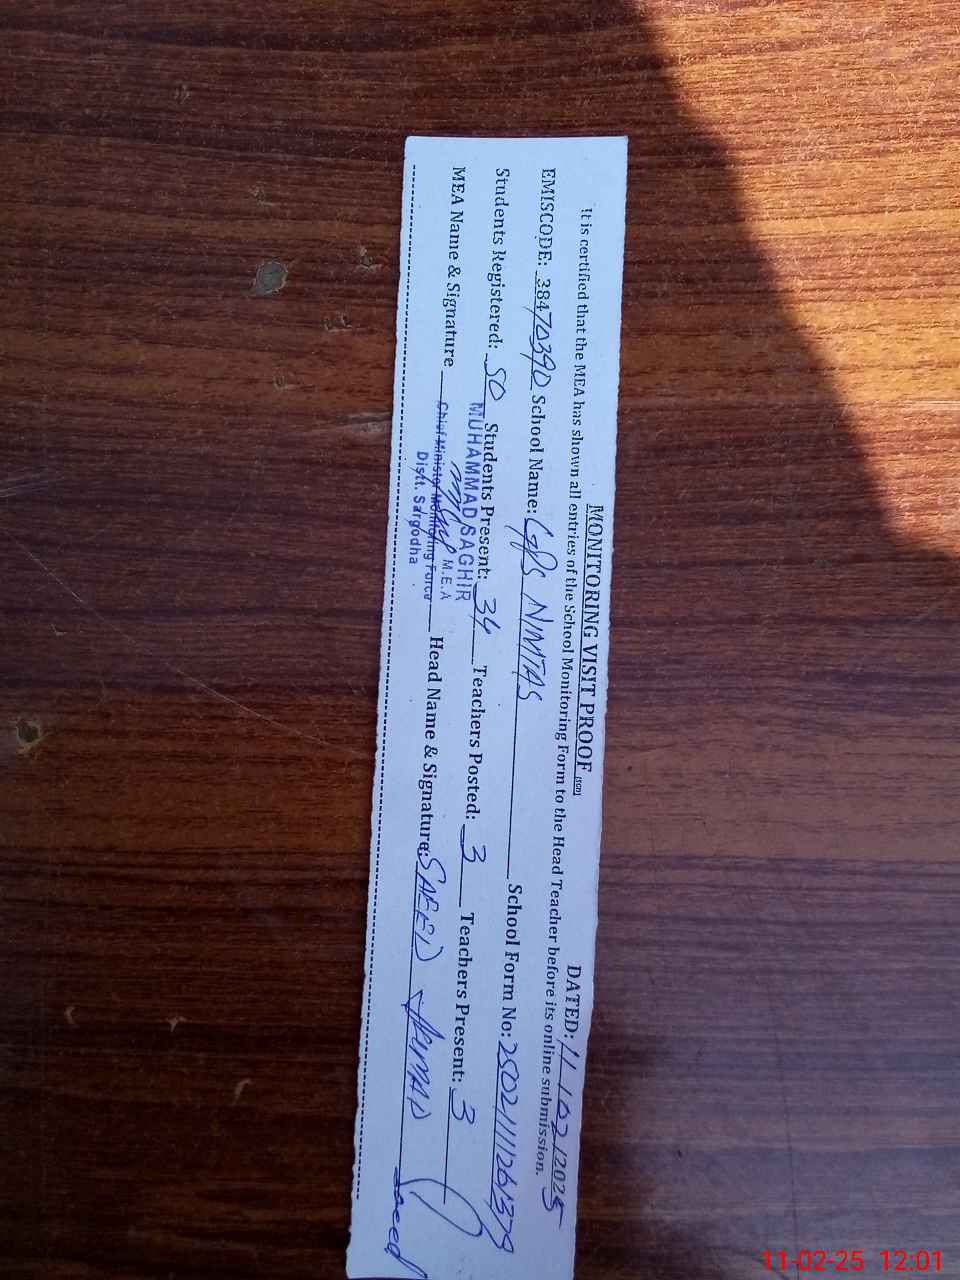 MONITORING VISIT PROOF (SED) DATED: 11/02/2025
It is certified that the MEA has shown all entries of the School Monitoring Form to the Head Teacher before its online submission.
EMISCODE: 38470390 School Name: GPS NIMTAS School Form No:
Students Registered: 50 Students Present: 34 Teachers Posted: 3 Teachers Present: 3
MUHAMMAD SAGHIR
M.E.A
MEA Name & Signature Chief Minister Monitoring Force Head Name & Signature: SAEED AHMAD Saeed
Distt. Sargodha
11-02-25 12:01